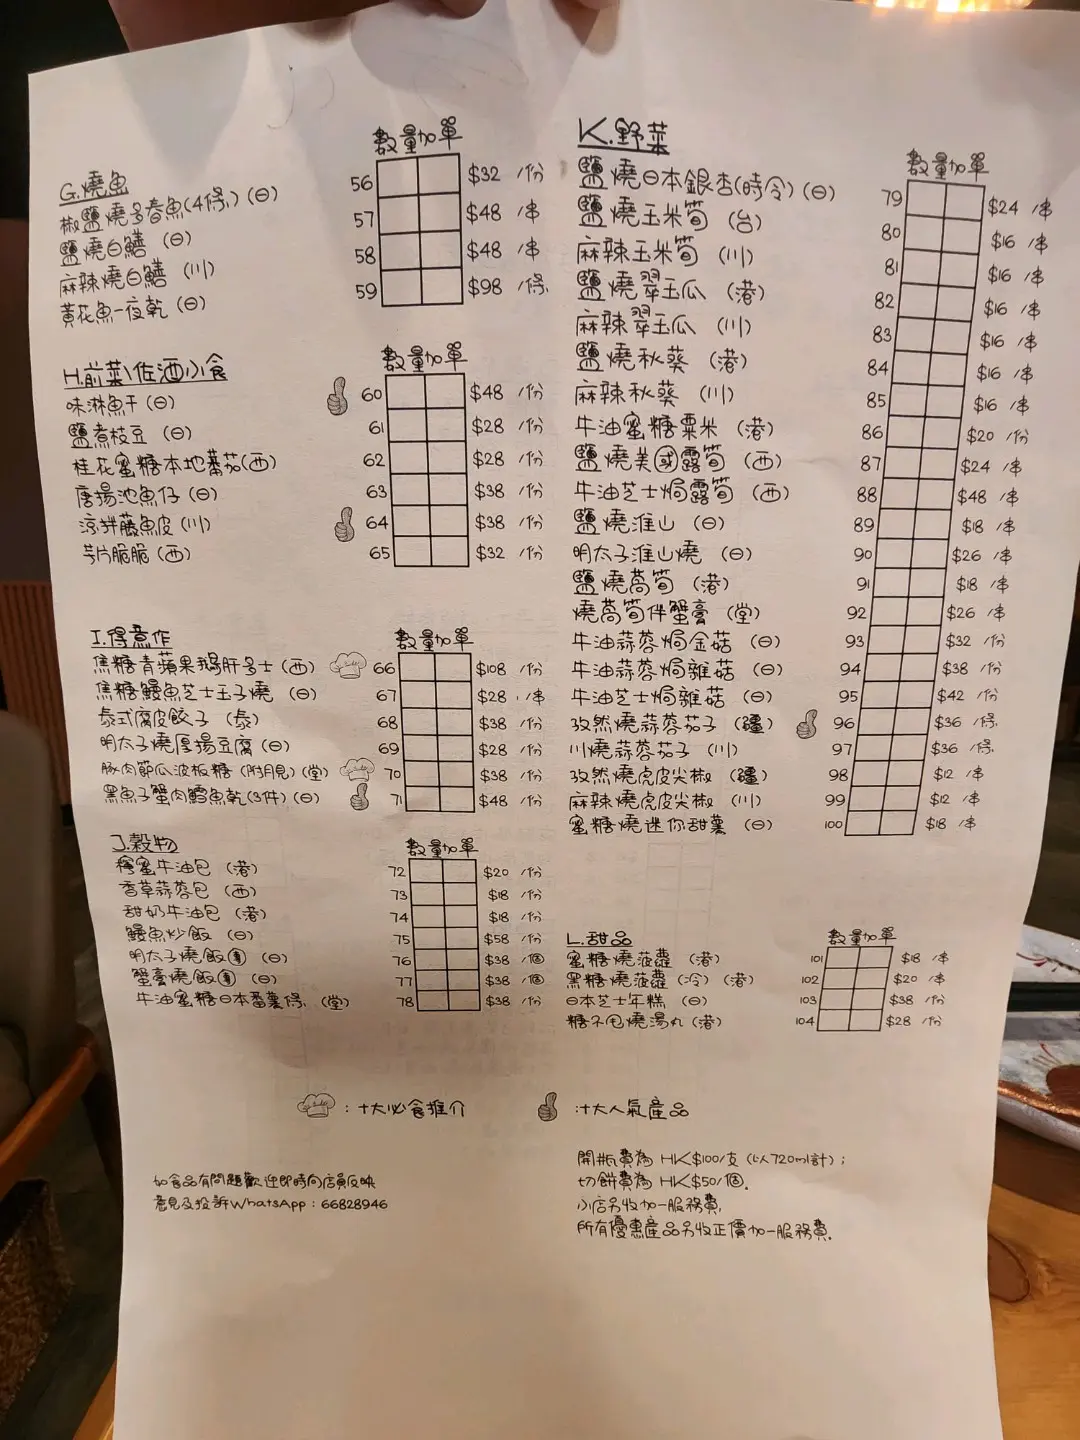 G.燒魚
數量加單
椒鹽燒多春魚(4條)(日) 56 $32 /份
鹽燒白鱔 (日) 57 $48 /串
麻辣燒白鱔 (川) 58 $48 /串
黃花魚一夜乾 (日) 59 $98 /條
H.前菜\佐酒小食
數量加單
味淋魚干 (日) 60 $48 /份
鹽煮枝豆 (日) 61 $28 /份
桂花蜜糖本地蕃茄(西) 62 $28 /份
唐揚池魚仔 (日) 63 $38 /份
涼拌藤魚皮 (川) 64 $38 /份
芋片脆脆 (西) 65 $32 /份
I.得意作
數量加單
焦糖青蘋果鵝肝多士 (西) 66 $108 /份
焦糖鰻魚芝士玉子燒 (日) 67 $28 /串
泰式腐皮餃子 (泰) 68 $38 /份
明太子燒厚揚豆腐 (日) 69 $28 /份
豚肉節瓜波板糖 (附月見) (堂) 70 $38 /份
黑魚子蟹肉鱈魚乾(3件) (日) 71 $48 /份
J.穀物
數量加單
檸蜜牛油包 (港) 72 $20 /份
香草蒜蓉包 (西) 73 $18 /份
甜奶牛油包 (港) 74 $18 /份
鰻魚炒飯 (日) 75 $58 /份
明太子燒飯團 (日) 76 $38 /個
蟹膏燒飯團 (日) 77 $38 /個
牛油蜜糖日本番薯條 (堂) 78 $38 /份
K.野菜
數量加單
鹽燒日本銀杏(時令) (日) 79 $24 /串
鹽燒玉米筍 (台) 80 $16 /串
麻辣玉米筍 (川) 81 $16 /串
鹽燒翠玉瓜 (港) 82 $16 /串
麻辣翠玉瓜 (川) 83 $16 /串
鹽燒秋葵 (港) 84 $16 /串
麻辣秋葵 (川) 85 $16 /串
牛油蜜糖粟米 (港) 86 $20 /份
鹽燒美國露筍 (西) 87 $24 /串
牛油芝士焗露筍 (西) 88 $48 /串
鹽燒淮山 (日) 89 $18 /串
明太子淮山燒 (日) 90 $26 /串
鹽燒萵筍 (港) 91 $18 /串
燒萵筍伴蟹膏 (堂) 92 $26 /串
牛油蒜蓉焗金菇 (日) 93 $32 /份
牛油蒜蓉焗雜菇 (日) 94 $38 /份
牛油芝士焗雜菇 (日) 95 $42 /份
孜然燒蒜蓉茄子 (疆) 96 $36 /條
川燒蒜蓉茄子 (川) 97 $36 /條
孜然燒虎皮尖椒 (疆) 98 $12 /串
麻辣燒虎皮尖椒 (川) 99 $12 /串
蜜糖燒迷你甜薯 (日) 100 $18 /串
L.甜品
數量加單
蜜糖燒菠蘿 (港) 101 $18 /串
黑糖燒菠蘿 (冷) (港) 102 $20 /串
日本芝士年糕 (日) 103 $38 /份
糖不甩燒湯丸 (港) 104 $28 /份
：十大必食推介
：十大人氣產品
如食品有問題歡迎即時向店員反映
意見及投訴WhatsApp：66828946
開瓶費為 HK$100/支 (以720ml計)；
切餅費為 HK$50/個。
小店另收加一服務費,
所有優惠產品另收正價加一服務費.